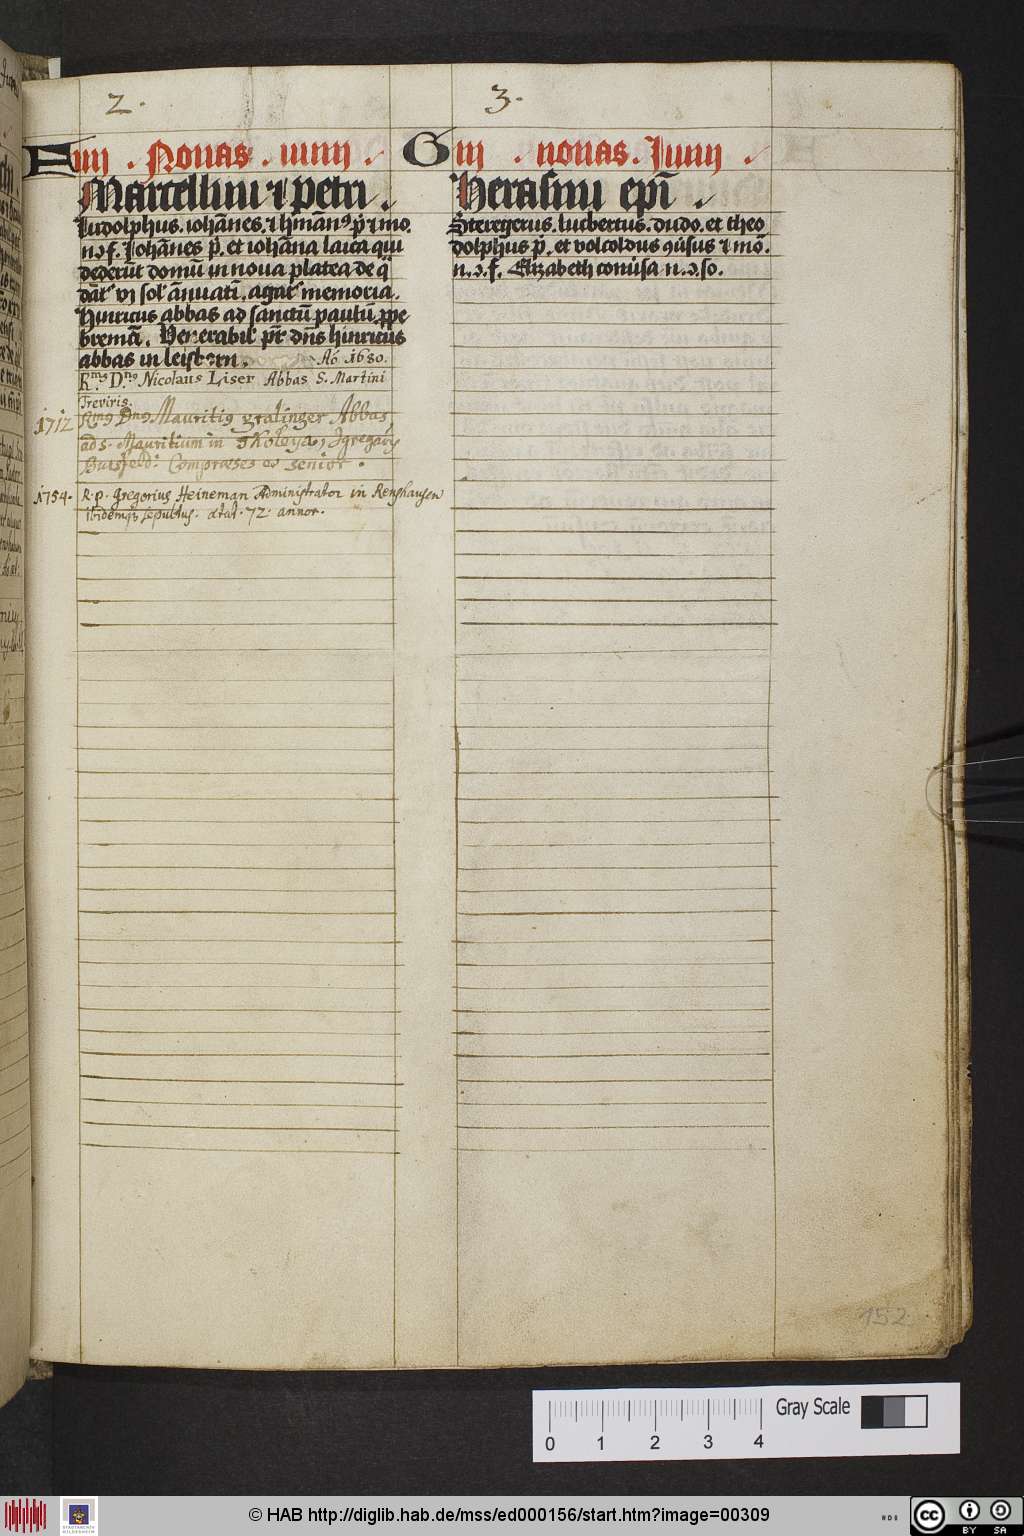 2.
F iiij . Nonas . iunij .
Marcellini ⁊ petri .
Ludolphus . iohānes . ⁊ hmān⁹ . p̄ ⁊ mo .
n . ɔ . f . Iohānes p̄ . et iohāna laica qui
dederūt domū in noua platea de q̄
dāt᷑ vj sol᷑ ānuati᷑ . agat᷑ memoria .
Hinricus abbas ad sanctū paulū ꝓpe
bremā . Venerabil᷑ pr̄ dn̄s hinricus
abbas in leisborn . Aō 1680.
R.mus D.nus Nicolaus Liser Abbas S. Martini
Treviris.
1712 Rmꝯ Dnꝯ Mauritiꝯ gralinger Abbas
ad s. Mauritium in
Compræses et senior .
1754. R. p. gregorius Heineman Administrator in Renshausen
ibidemq; sepultus. ætat. 72. annor.
3.
G iij . nonas . Iunij .
Herasmi ep̄i .
Steregerus . lucbertus . dudo . et theo
dolphus p̄ . et volcoldus ꝯūsus ⁊ mō .
n . ɔ . f . Elyzabeth conūsa n . ɔ . so .
152
0 1 2 3 4
Gray Scale
© HAB http://diglib.hab.de/mss/ed000156/start.htm?image=00309
STADTARCHIV
HILDESHEIM
cc BY SA